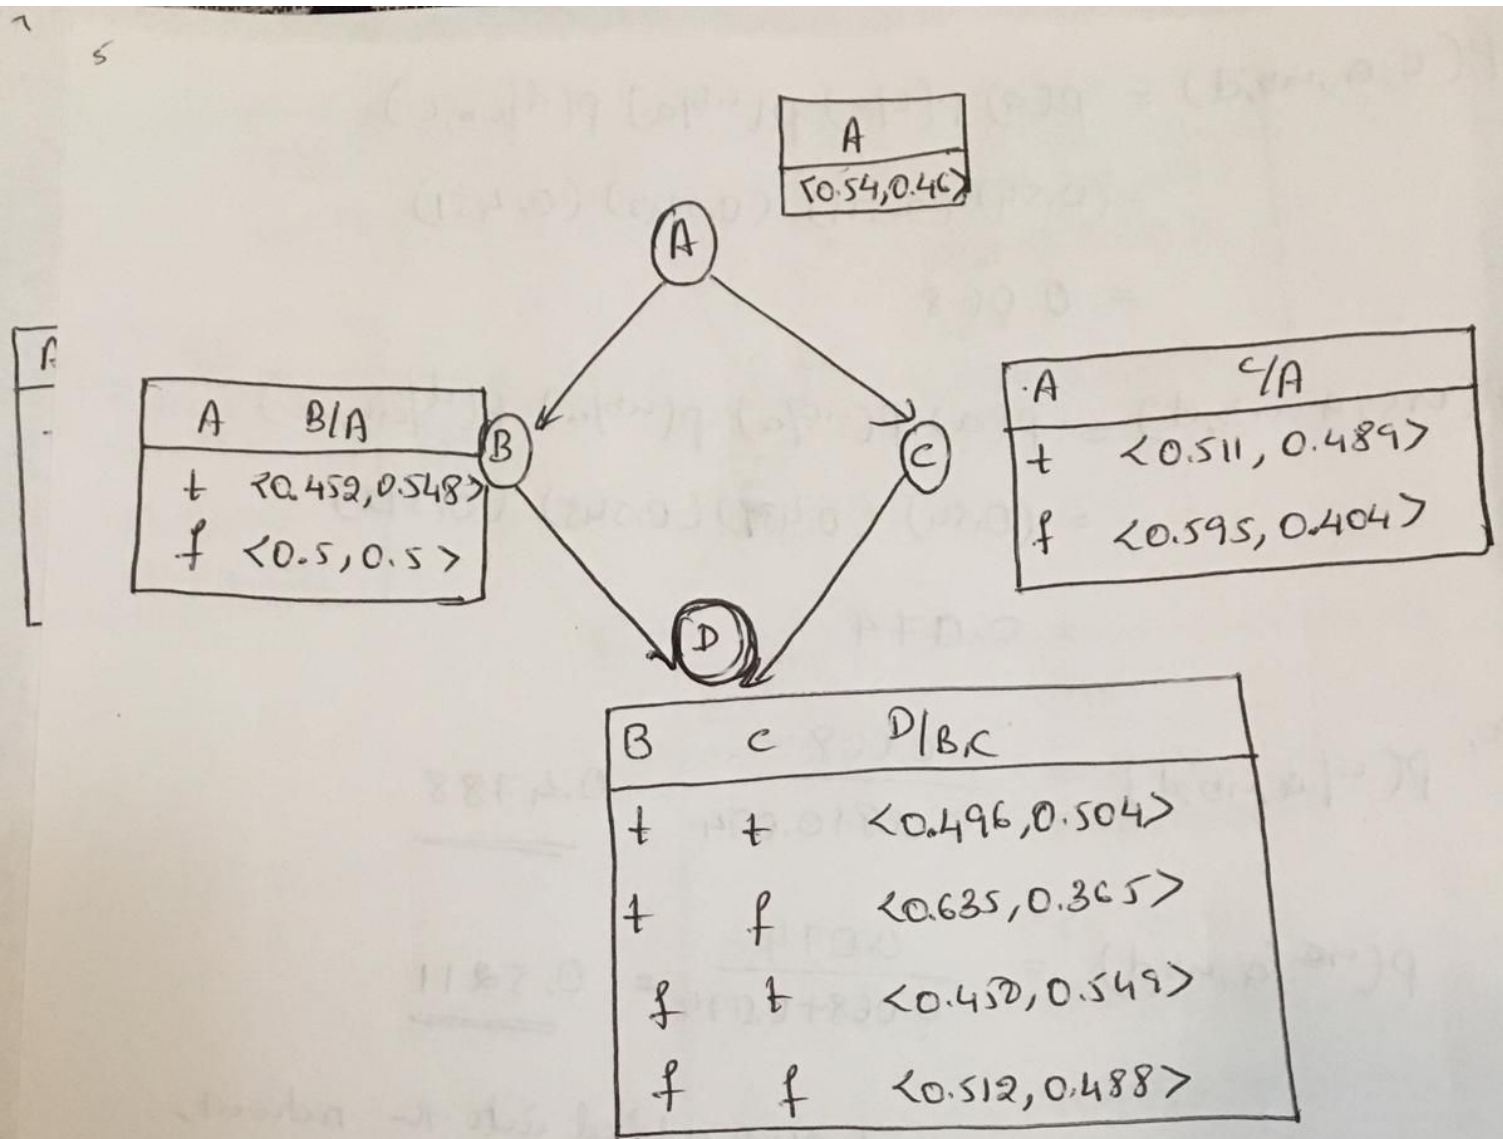 5
A
<0.54,0.46>
A
A B/A
t <0.452,0.548>
f <0.5,0.5>
B
C
A C/A
t <0.511, 0.489>
f <0.595, 0.404>
D
B C D/B,C
t t <0.496,0.504>
t f <0.635,0.365>
f t <0.450,0.549>
f f <0.512,0.488>